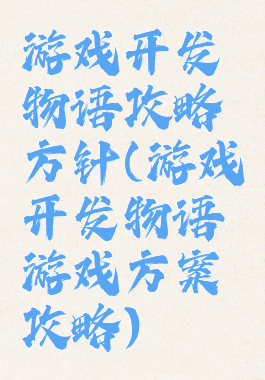 游戏开发
物语攻略
方针(游戏
开发物语
游戏方案
攻略)